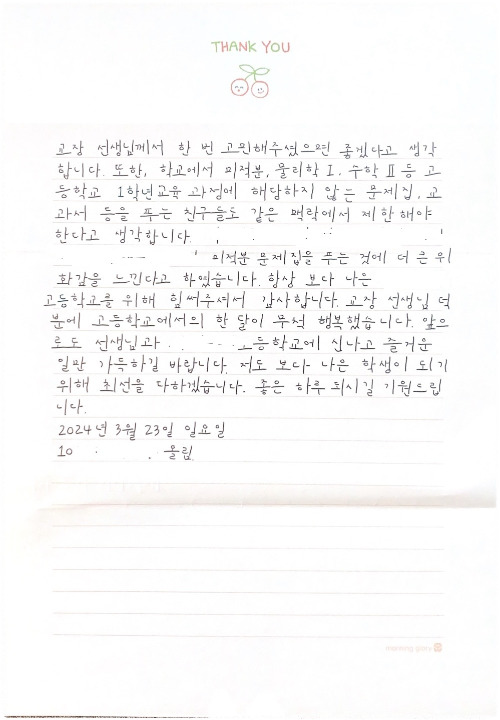 THANK YOU
교장 선생님께서 한 번 고민해주셨으면 좋겠다고 생각
합니다. 또한, 학교에서 미적분, 물리학 I, 수학 II 등 고
등학교 1학년교육 과정에 해당하지 않는 문제집, 교
과서 등을 푸는 친구들도 같은 맥락에서 제한해야
한다고 생각합니다.
미적분 문제집을 푸는 것에 더 큰 위
화감을 느낀다고 하였습니다. 항상 보다 나은
고등학교를 위해 힘써주셔서 감사합니다. 교장 선생님 덕
분에 고등학교에서의 한 달이 무척 행복했습니다. 앞으
로도 선생님과 고등학교에 신나고 즐거운
일만 가득하길 바랍니다. 저도 보다 나은 학생이 되기
위해 최선을 다하겠습니다. 좋은 하루 되시길 기원드립
니다.
2024년 3월 23일 일요일
10 올림
morning glory